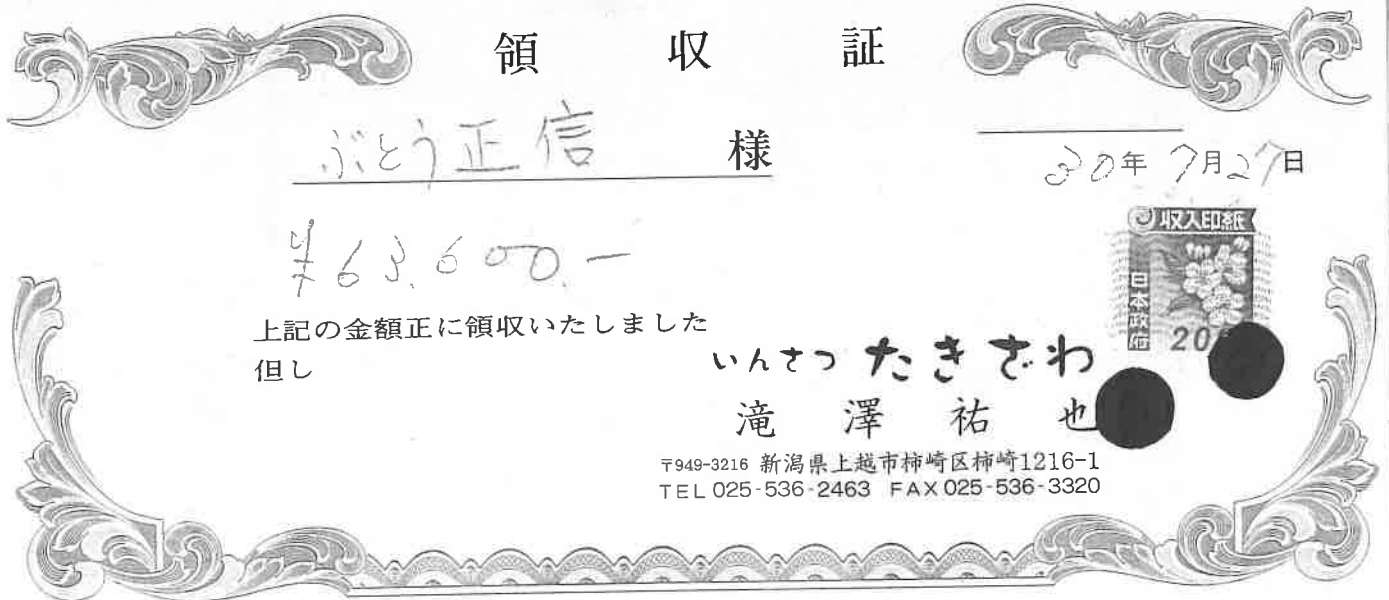 領収証
ぶとう正信 様
30年 7月27日
¥63,600.-
収入印紙
日本政府
200
上記の金額正に領収いたしました
但し
いんさつ たきざわ
滝澤祐也
〒949-3216 新潟県上越市柿崎区柿崎1216-1
TEL 025-536-2463 FAX 025-536-3320